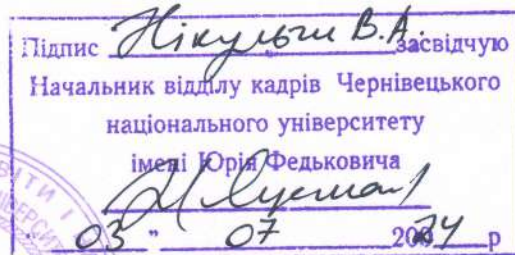 Підпис Нікульчи В.А. засвідчую
Начальник відділу кадрів Чернівецького
національного університету
імені Юрія Федьковича
03 " 07 2024 р